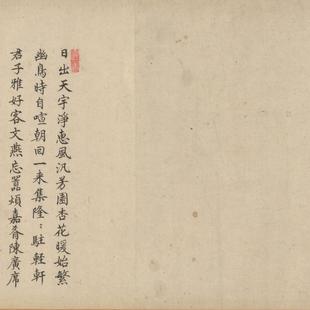 日出天宇淨惠風汎芳園杏花暖始繁
幽鳥時自喧朝回一来集隆：駐軽軒
君子雅好客文燕忘囂煩嘉肴陳廣席